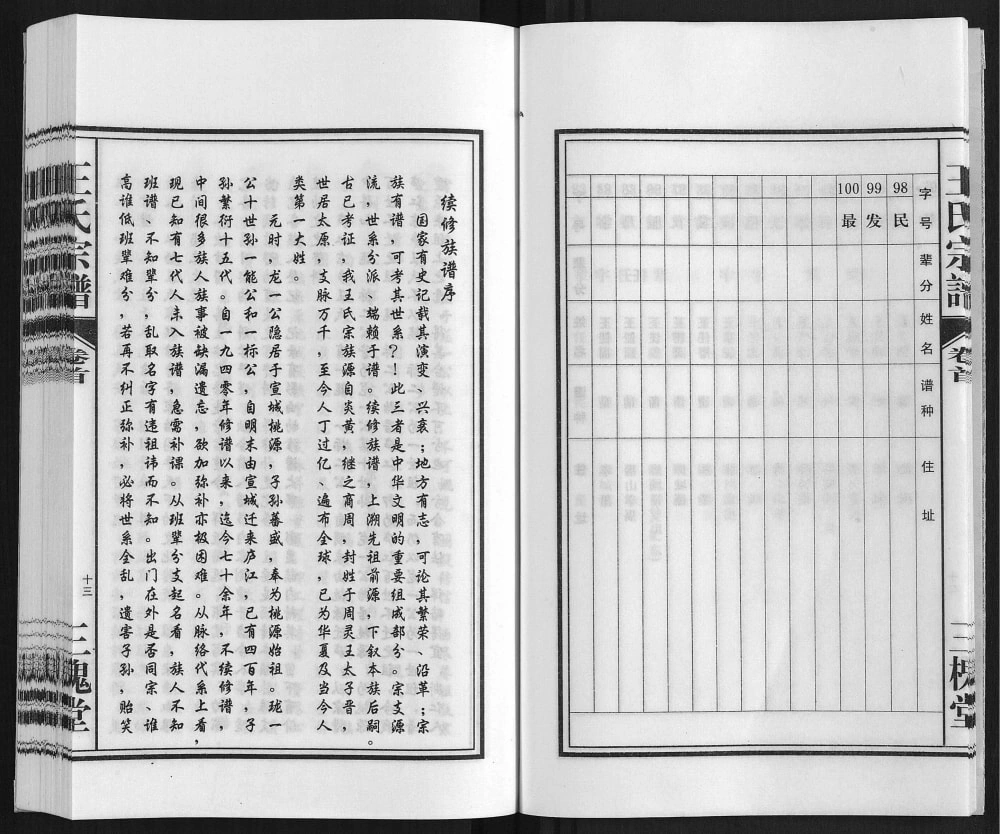 王氏宗谱
卷首
三槐堂
字号
辈分
姓名
谱种
住址
98 民
99 发
100 最
续修族谱序
国家有史记载其演变、兴衰；地方有志 可论其繁荣、沿革；宗
族有谱，可考其世系？！此三者是中华文明的重要组成部分。宗支源
流，世系分派、端赖于谱。续修族谱，上溯先祖前源，下叙本族后嗣。
古已考证，我王氏宗族源自炎黄，继之商周，封姓于周灵王太子晋，
世居太原，支脉万千，至今人丁过亿、遍布全球，已为华夏及当今人
类第一大姓。
元时 龙一公隐居于宣城桃源，子孙蕃盛，奉为桃源始祖。珑一
公十世孙一能公和一标公，自明末由宣城迁来庐江，已有四百年，子
孙繁衍十五代。自一九四零年修谱以来，迄今七十余年，不续修谱，
中间很多族人族事被缺漏遗忘，欲加弥补亦极困难。从脉络代系上看，
现已知有七代人未入族谱，急需补课。从班辈分支起名看，族人不知
班谱、不知辈分，乱取名字有违祖讳而不知。出门在外是否同宗、谁
高谁低班辈难分，若再不纠正弥补，必将世系全乱，遗害子孙，贻笑
王氏宗谱
卷首
十三
三槐堂